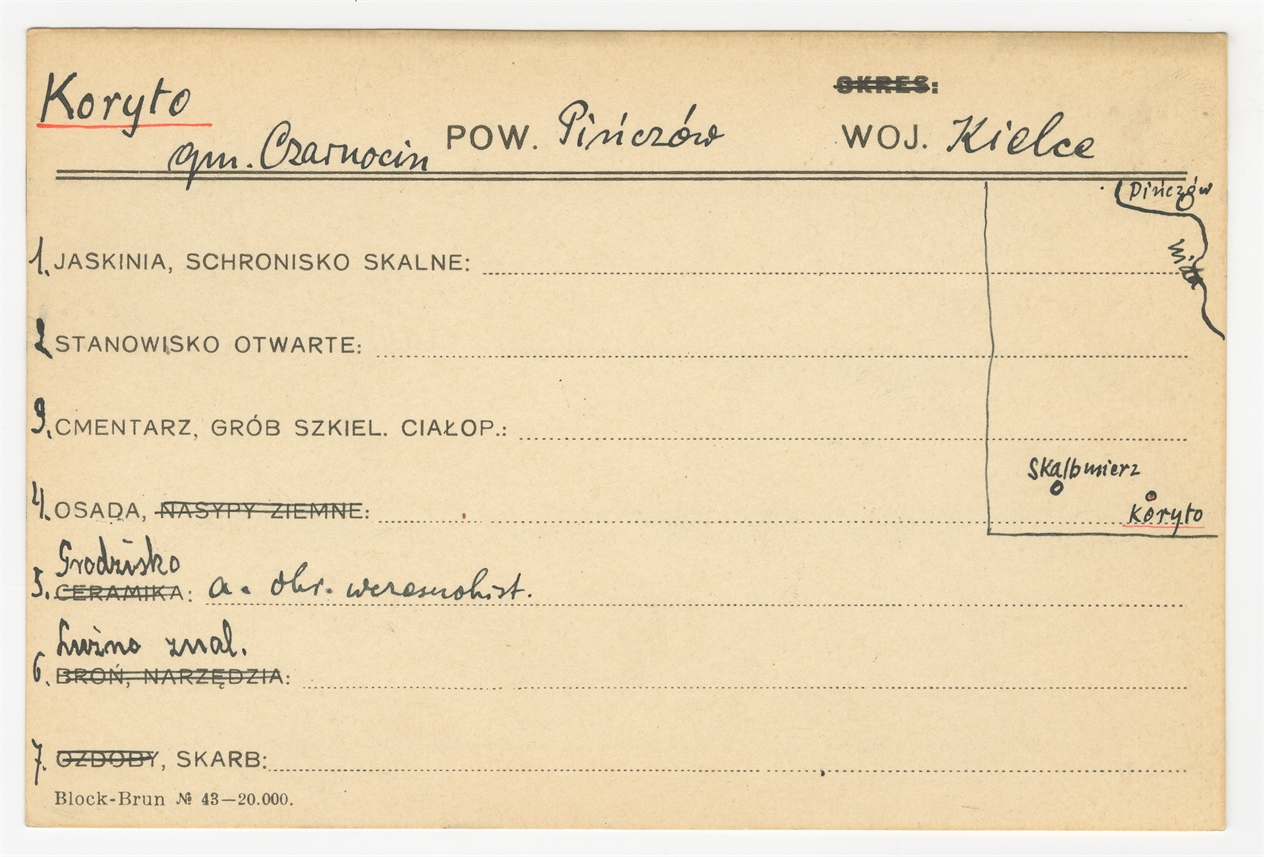 Koryto
OKRES:
gm. Czarnocin POW. Pińczów WOJ. Kielce
Pińczów
1. JASKINIA, SCHRONISKO SKALNE:
2 STANOWISKO OTWARTE:
3. CMENTARZ, GRÓB SZKIEL. CIAŁOP.:
Skalbmierz
4. OSADA, NASYPY ZIEMNE:
Koryto
Grodzisko
5. CERAMIKA: a. okr. wczesnohist.
Luźne znal.
6. BROŃ, NARZĘDZIA:
7. OZDOBY, SKARB:
Block-Brun № 43—20.000.